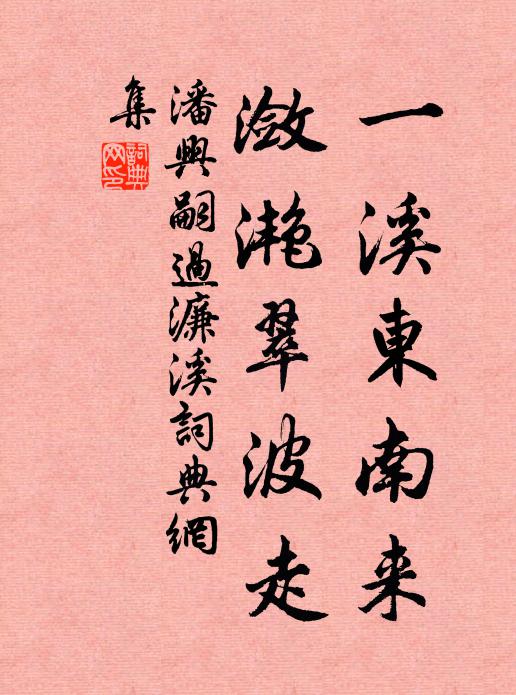 一溪東南来
潋滟翠波走
潘興嗣過濂溪詞典網
集
詞典
网印